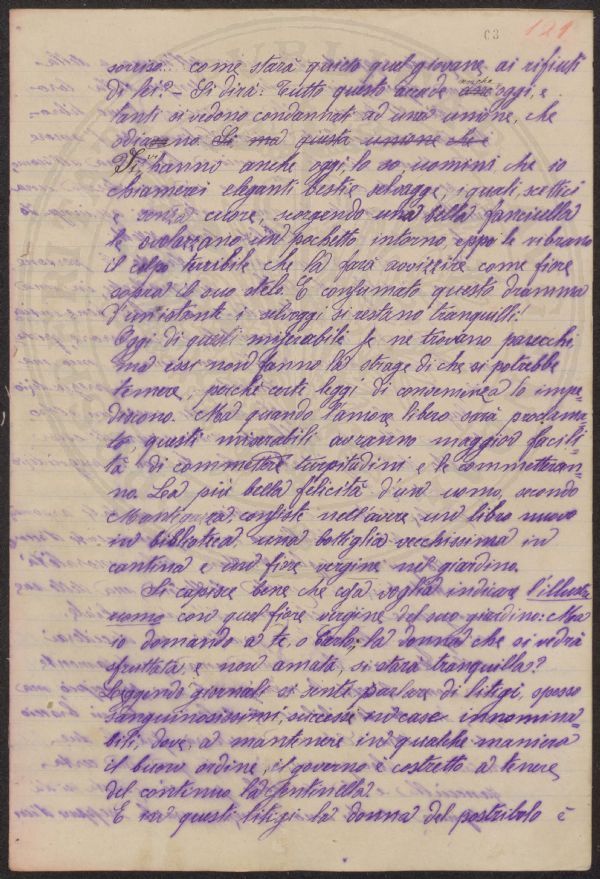 63 121
sorriso.. come starà quieto quel giovane ai rifiuti
di lei? - Si dirà: Tutto questo accade anche oggi, e
tanti si vedono condannati ad una unione, che
odiarono. Si ma questa unione che è
Si hanno anche oggi, lo so uomini che io
chiamerei eleganti bestie selvagge, i quali, scettici
e senza cuore, scorgendo una bella fanciulla
le svolazzano un pochetto intorno, eppoi le vibrano
il colpo terribile che la farà avvizzire come fiore
sopra il suo stelo. E consumato questo dramma
d'un istante i selvaggi si restano tranquilli!
Oggi di questi miserabili se ne trovano parecchi
ma essi non fanno la strage di che si potrebbe
temere, perché certe leggi di convenienza lo impe-
discono. Ma quando l'amore libero sarà proclama-
to, questi miserabili avranno maggior facili-
tà di commettere turpitudini e le commetteran-
no. La più bella felicità d'un uomo, secondo
Mantegazza, consiste nell'avere, un libro nuovo
in biblioteca una bottiglia vecchissima in
cantina e un fiore vergine nel giardino.
Si capisce bene che cosa voglia indicare l'illustre
uomo con quel fiore vergine del suo giardino: Ma
io domando a te, o Carlo, la donna che si vedrà
sfruttata e non amata, si starà tranquilla?
Leggendo giornali si sente parlare di litigi, spesso
sanguinosissimi, successi in case innomina-
bili, dove, a mantenere in qualche maniera
il buon ordine, il governo è costretto a tenere
del continuo la sentinella.
E in questi litigi la donna del postribolo è